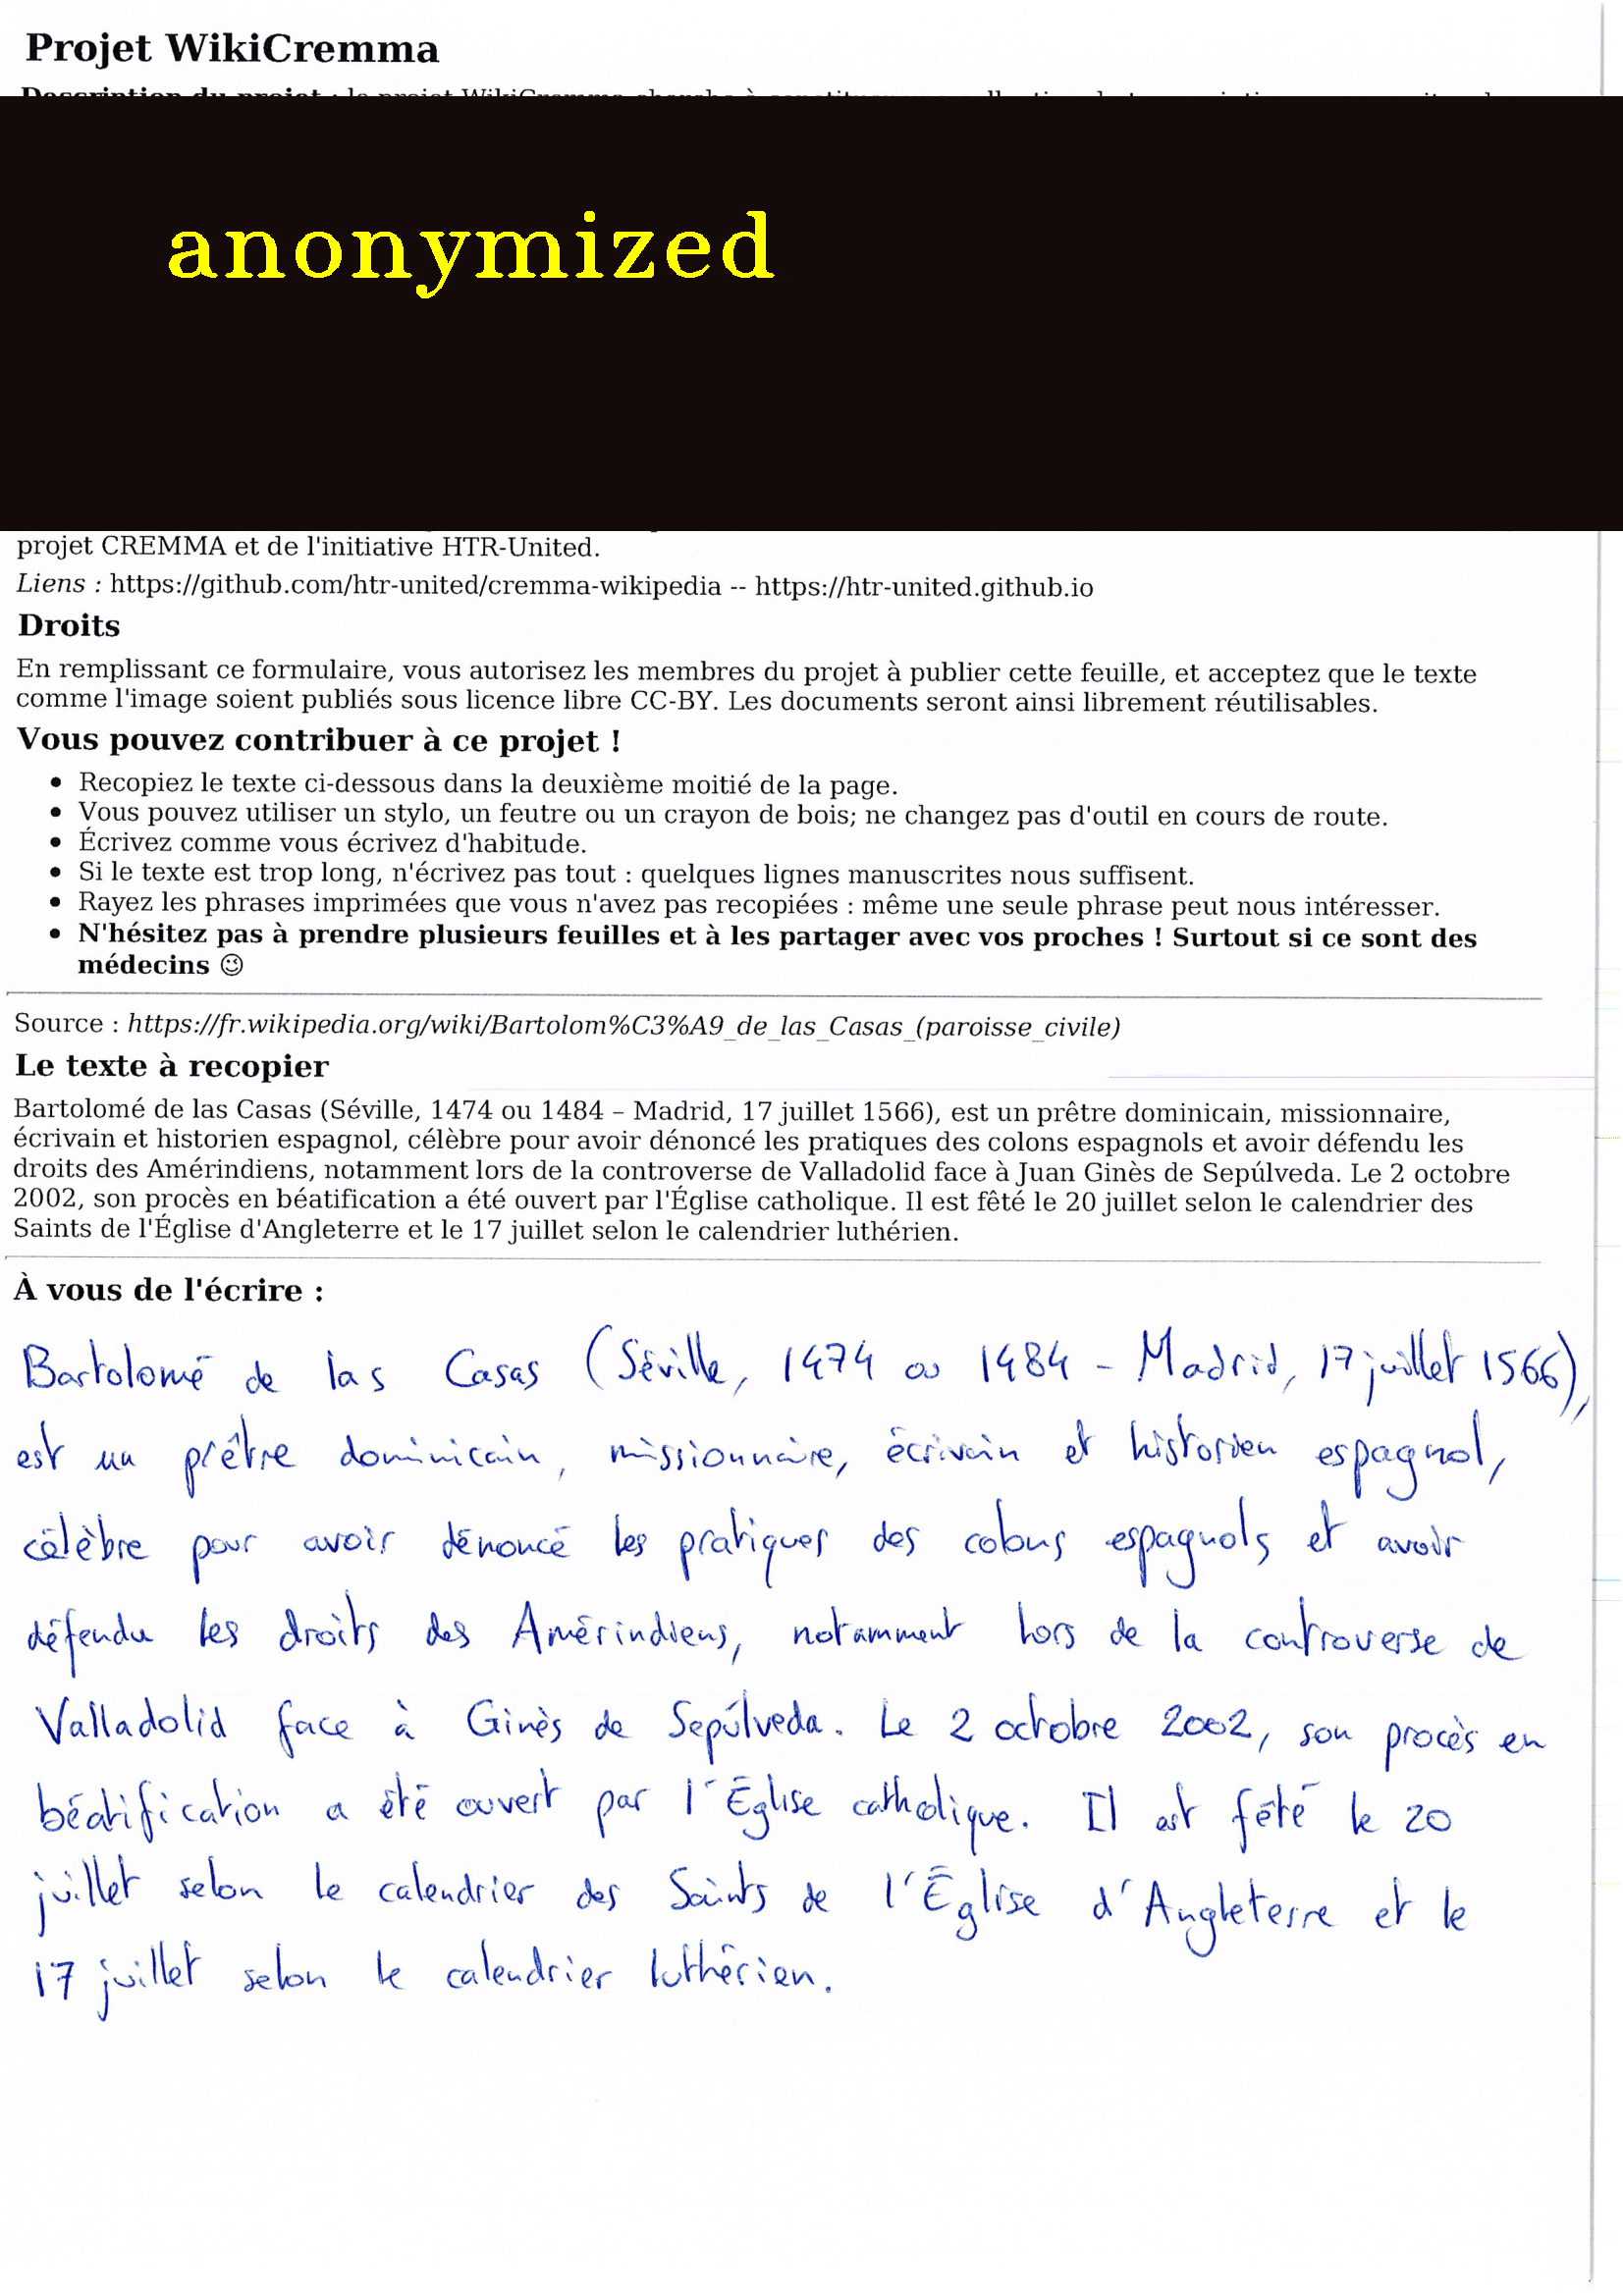 Projet WikiCremma
anonymized
projet CREMMA et de l'initiative HTR-United.
Liens : https://github.com/htr-united/cremma-wikipedia -- https://htr-united.github.io
Droits
En remplissant ce formulaire, vous autorisez les membres du projet à publier cette feuille, et acceptez que le texte
comme l'image soient publiés sous licence libre CC-BY. Les documents seront ainsi librement réutilisables.
Vous pouvez contribuer à ce projet !
• Recopiez le texte ci-dessous dans la deuxième moitié de la page.
• Vous pouvez utiliser un stylo, un feutre ou un crayon de bois; ne changez pas d'outil en cours de route.
• Écrivez comme vous écrivez d'habitude.
• Si le texte est trop long, n'écrivez pas tout : quelques lignes manuscrites nous suffisent.
• Rayez les phrases imprimées que vous n'avez pas recopiées : même une seule phrase peut nous intéresser.
• N'hésitez pas à prendre plusieurs feuilles et à les partager avec vos proches ! Surtout si ce sont des
médecins 😉
Source : https://fr.wikipedia.org/wiki/Bartolom%C3%A9_de_las_Casas_(paroisse_civile)
Le texte à recopier
Bartolomé de las Casas (Séville, 1474 ou 1484 – Madrid, 17 juillet 1566), est un prêtre dominicain, missionnaire,
écrivain et historien espagnol, célèbre pour avoir dénoncé les pratiques des colons espagnols et avoir défendu les
droits des Amérindiens, notamment lors de la controverse de Valladolid face à Juan Ginès de Sepúlveda. Le 2 octobre
2002, son procès en béatification a été ouvert par l'Église catholique. Il est fêté le 20 juillet selon le calendrier des
Saints de l'Église d'Angleterre et le 17 juillet selon le calendrier luthérien.
À vous de l'écrire :
Bartolomé de las Casas (Séville, 1474 ou 1484 - Madrid, 17 juillet 1566),
est un prêtre dominicain, missionnaire, écrivain et historien espagnol,
célèbre pour avoir dénoncé les pratiques des colons espagnols et avoir
défendu les droits des Amérindiens, notamment lors de la controverse de
Valladolid face à Ginès de Sepúlveda. Le 2 octobre 2002, son procès en
béatification a été ouvert par l'Église catholique. Il est fêté le 20
juillet selon le calendrier des Saints de l'Église d'Angleterre et le
17 juillet selon le calendrier luthérien.